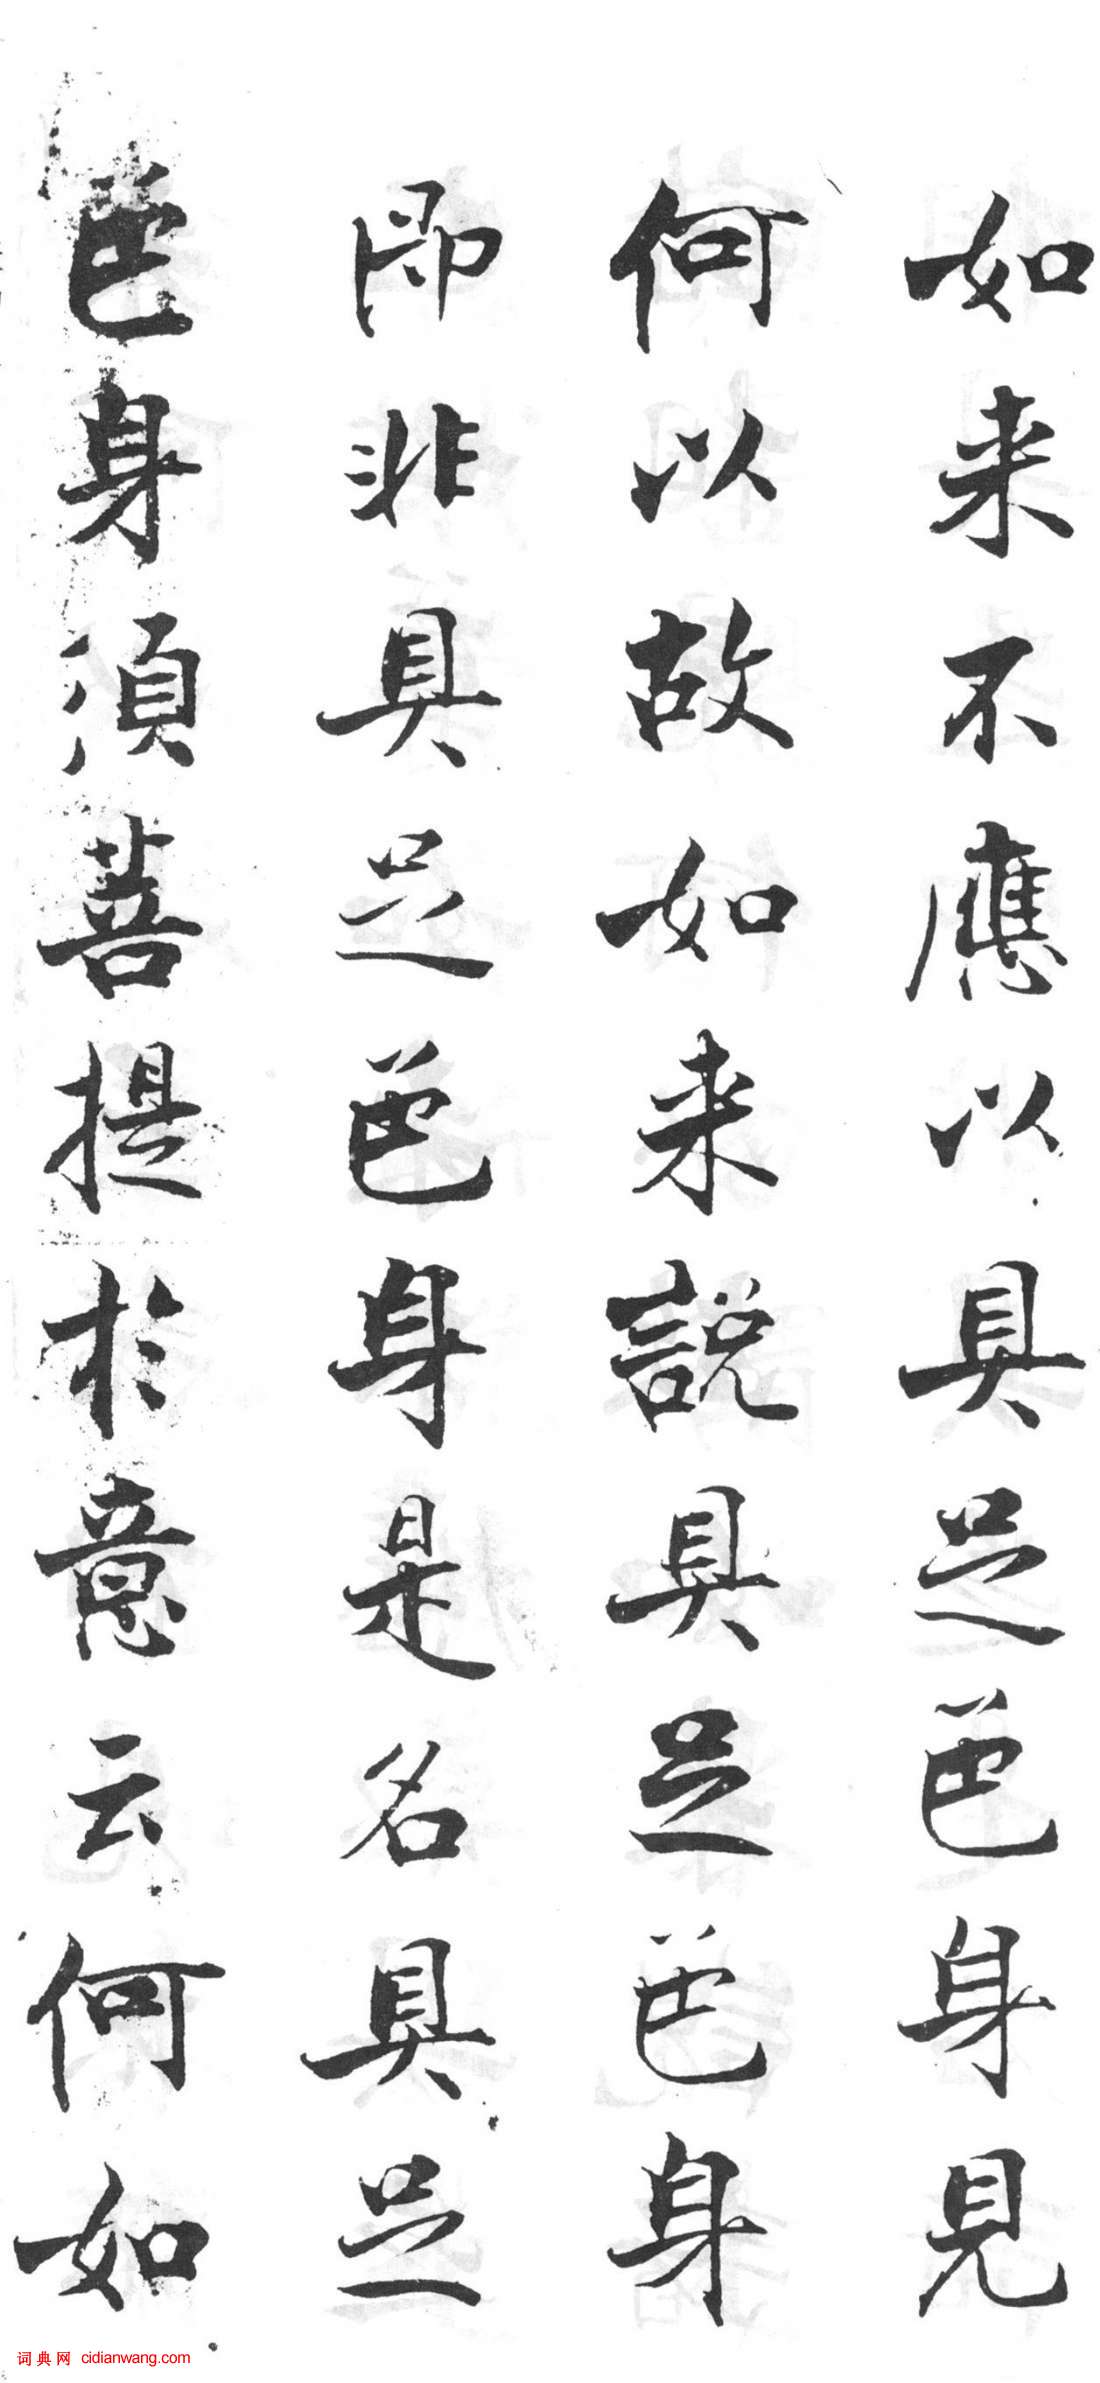 如来不應以具足色身見
何以故如来說具足色身
即非具足色身是名具足
色身須菩提於意云何如
词典网 cidianwang.com